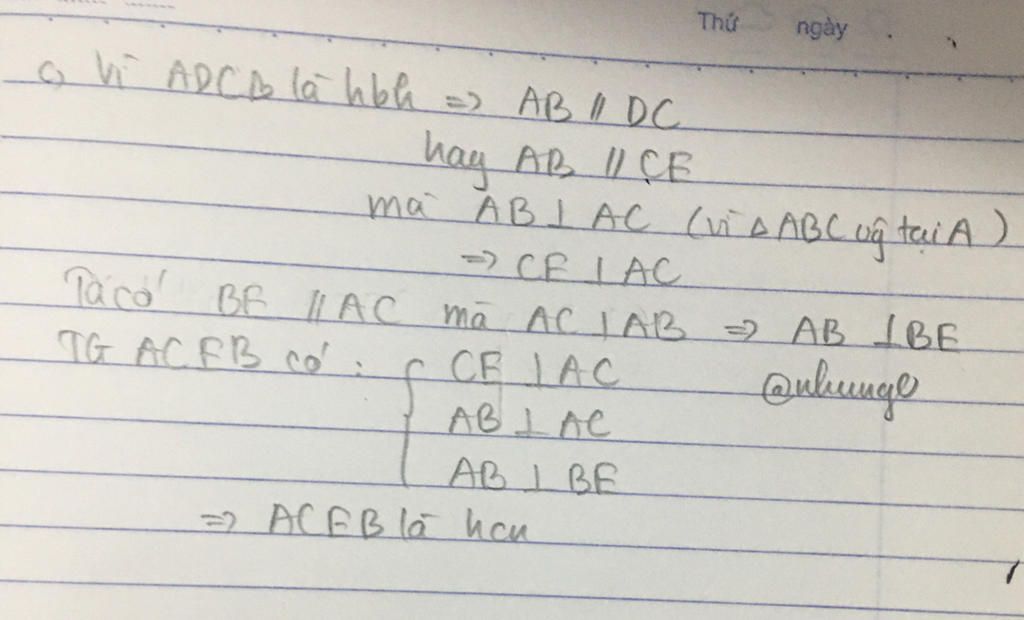 Thứ ngày . .
c) Vì ADCB là hbh => AB // DC
hay AB // CE
mà AB ⊥ AC (vì Δ ABC vg tại A)
=> CE ⊥ AC
Ta có BE // AC mà AC ⊥ AB => AB ⊥ BE
TG ACEB có : { CE ⊥ AC
@nhunge
AB ⊥ AC
AB ⊥ BE
=> ACEB là hcn